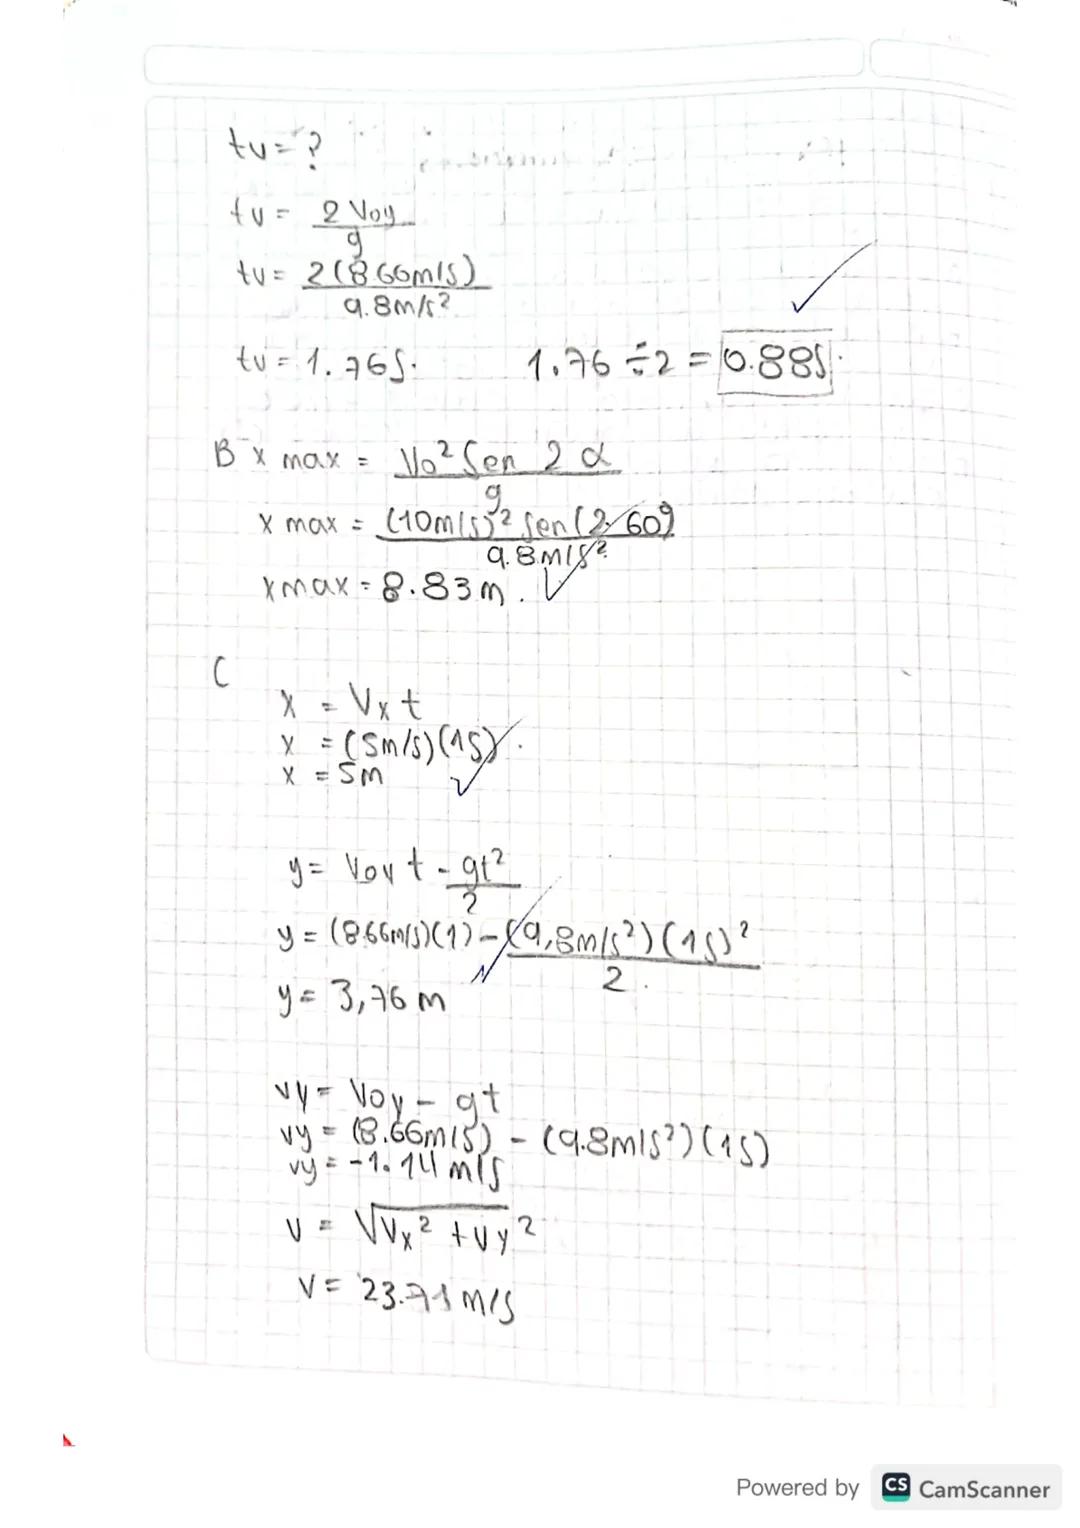 tv = ?
tv = 2 Voy / g
tv = 2(8.66m/s) / 9.8m/s²
tv = 1.76s. 1.76 ÷ 2 = 0.88s.
B x max = Vo² Sen 2 α / g
x max = (10m/s)² sen(2·60°) / 9.8m/s²
x max = 8.83 m.
C
x = Vx t
x = (5m/s)(1s).
x = 5m
y = Voy t - gt² / 2
y = (8.66m/s)(1) - (9,8m/s²)(1s)² / 2.
y = 3,76 m
vy = Voy - gt
vy = (8.66m/s) - (9.8m/s²)(1s)
vy = -1.14 m/s
v = √Vx² + Vy²
v = 23.71 m/s
Powered by CS CamScanner